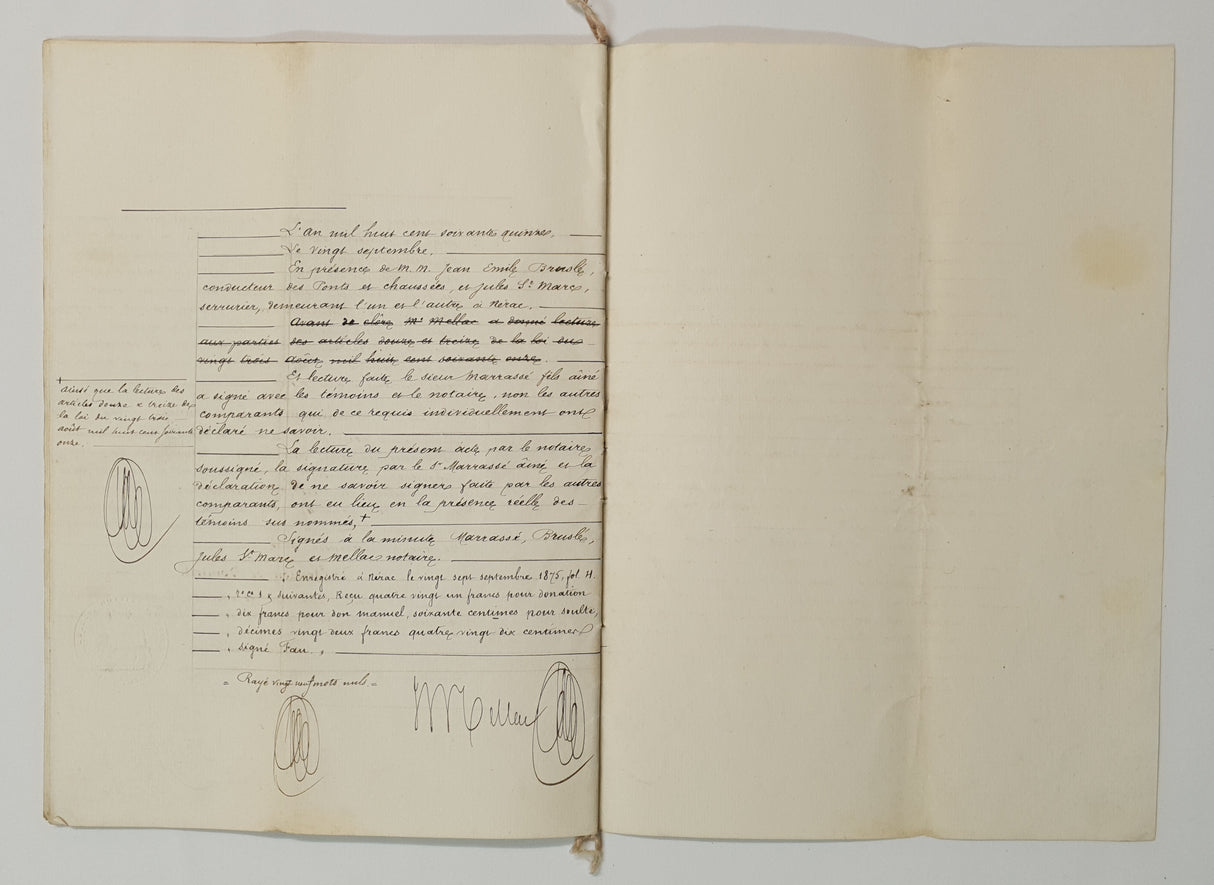 L'an mil huit cent soixante quinze.
Le vingt septembre.
En présence de M.M. Jean Emile Bruslé,
conducteur des Ponts et chaussées, et Jules St Marc,
serrurier, demeurant l'un et l'autre à Nérac.
Avant de clore Me Mellac a donné lecture
aux parties des articles douze et treize de la loi du
vingt trois août mil huit cent soixante onze.
Et lecture faite le sieur Marrassé fils âiné
a signé avec les témoins et le notaire, non les autres
comparants qui, de ce requis individuellement ont
déclaré ne savoir.
La lecture du présent acte par le notaire
soussigné, la signature par le Sr Marrassé âiné et la
déclaration de ne savoir signer faite par les autres
comparants, ont eu lieu en la présence réelle des
témoins sus nommés, +
+
ainsi que la lecture des
articles douze et treize de
la loi du vingt trois
août mil huit cent soixante
onze.
Signés à la minute Marrassé, Bruslé,
Jules St Marc et Mellac notaire.
Enregistré à Nérac le vingt sept septembre 1875, fol. 4.
suivantes, Reçu quatre vingt un francs pour donation
" dix francs pour don manuel, soixante centimes pour soulte,
" décimes vingt deux francs quatre vingt dix centimes
" signé Fau. "
= Rayé vingt neuf mots nuls =
Mellac